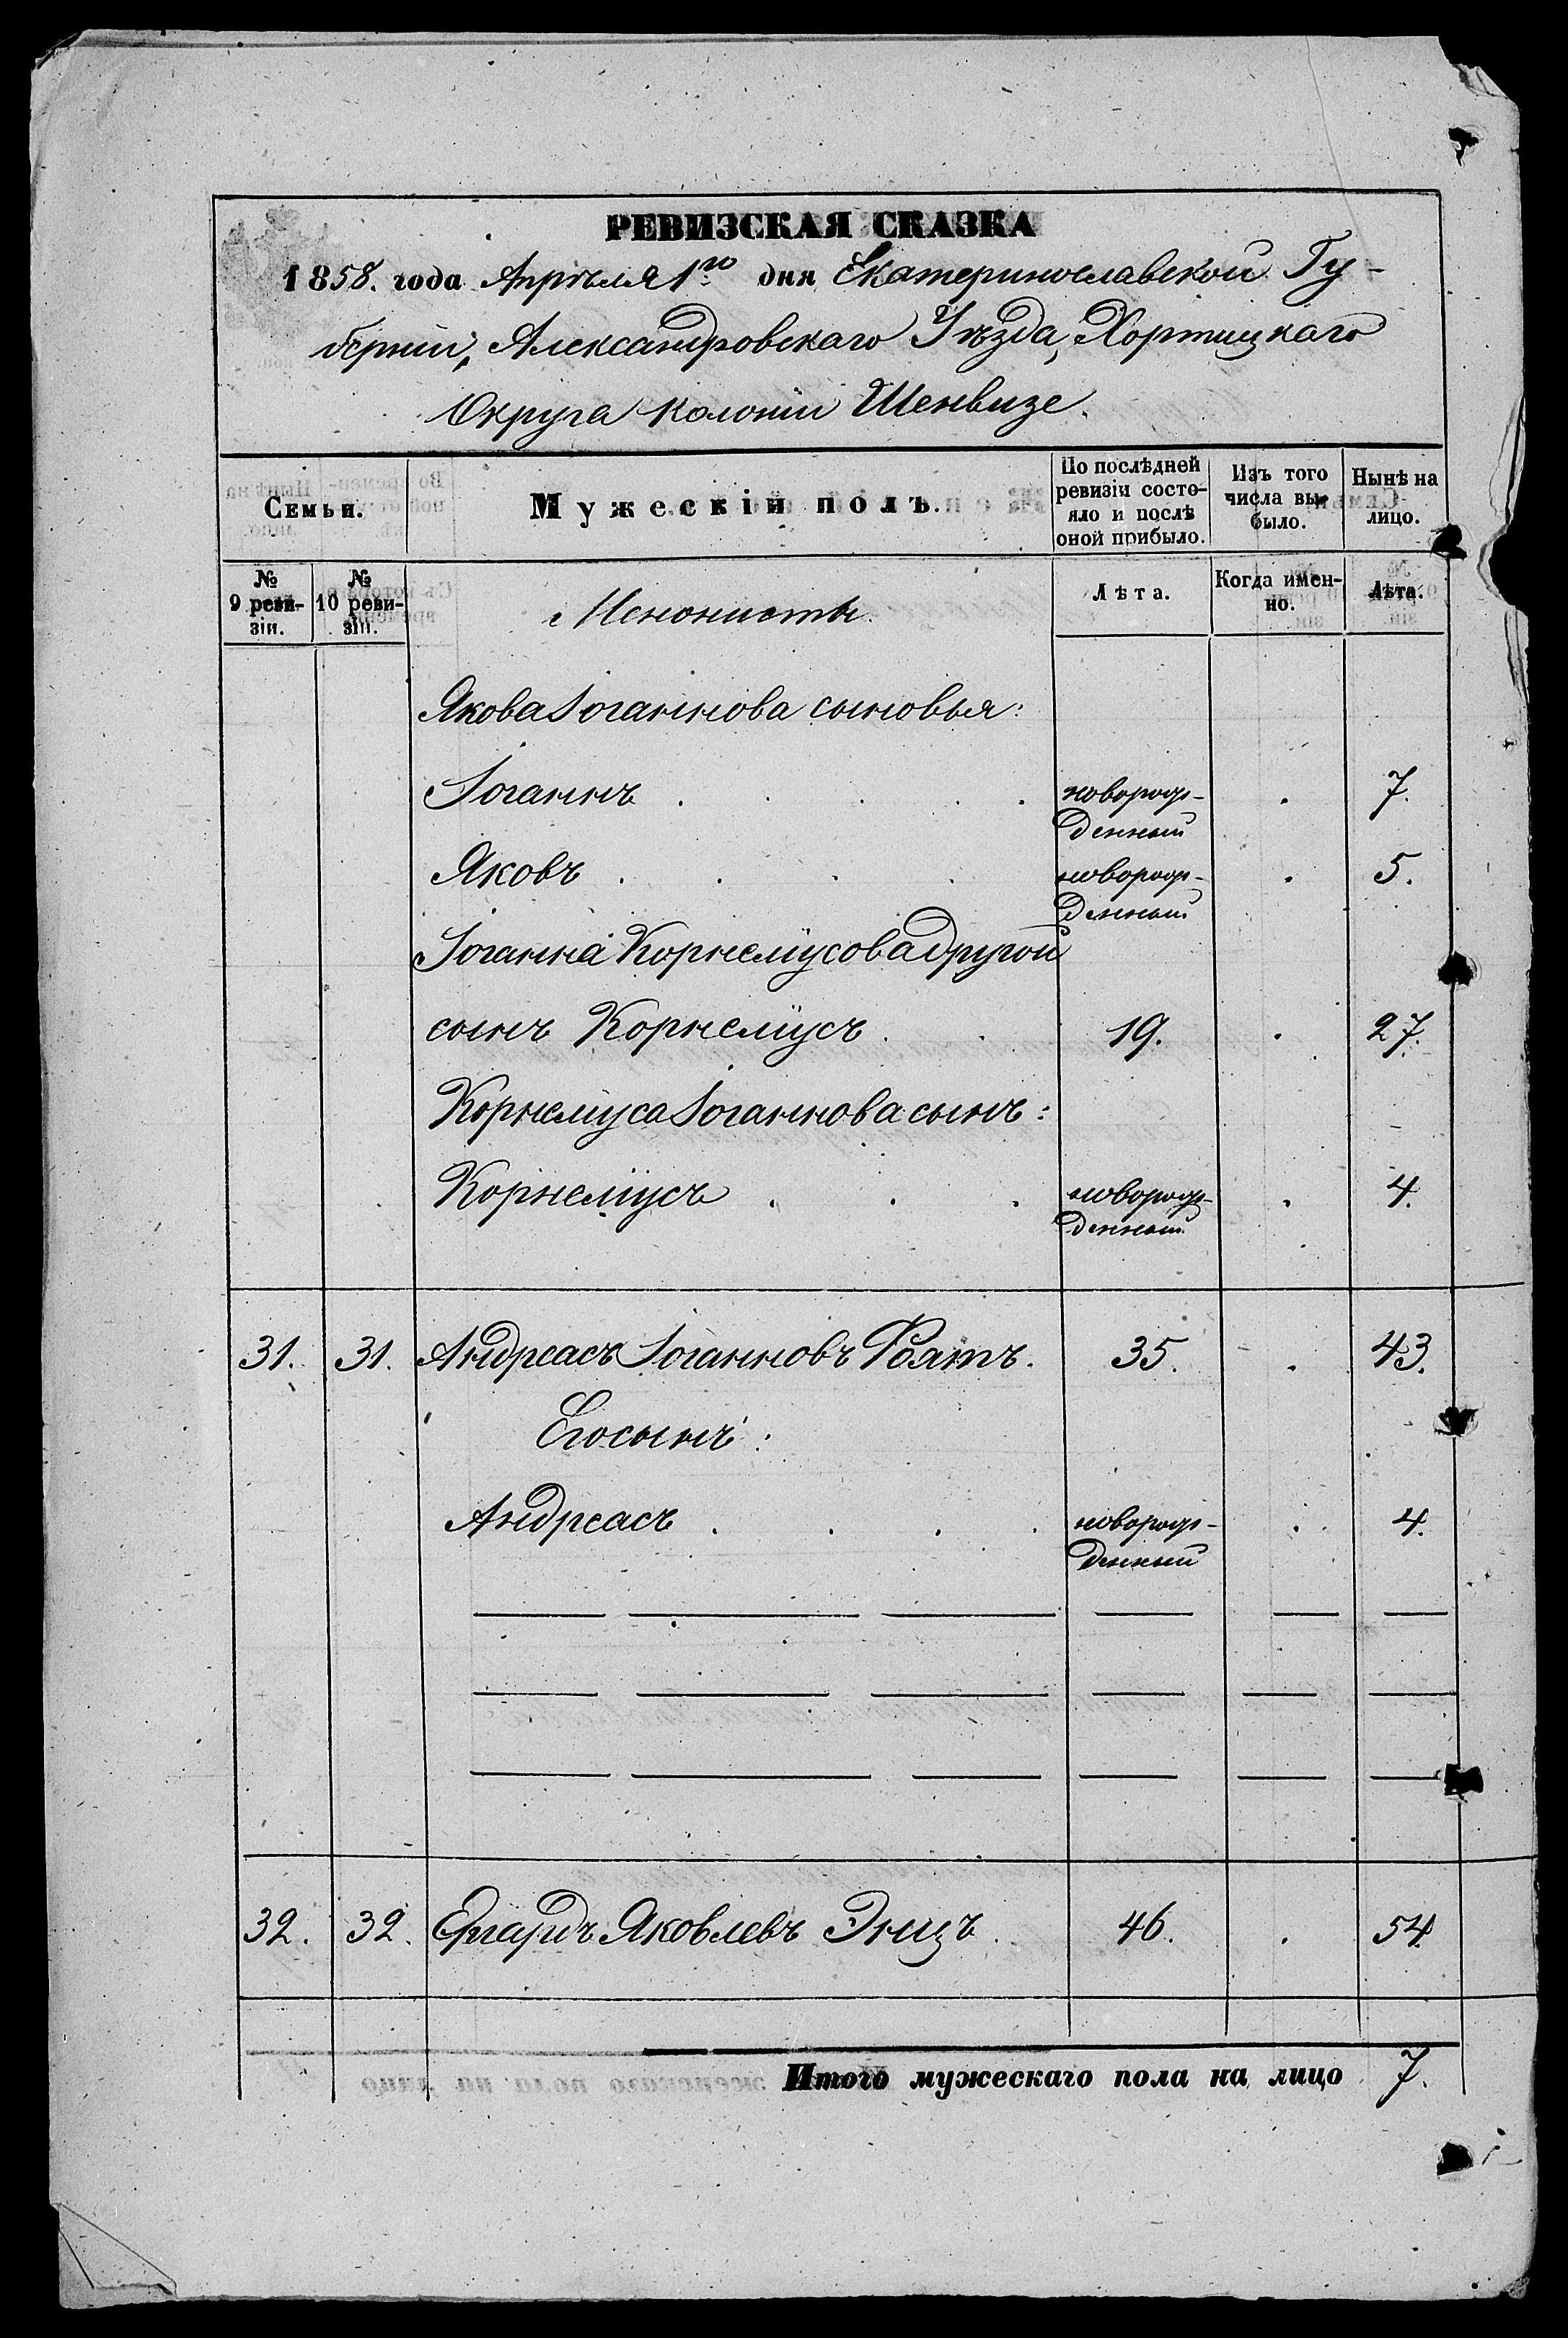 РЕВИЗСКАЯ СКАЗКА
1858. года Апрѣля 1го дня Екатеринославской Гу-
берніи, Александровскаго Уѣзда, Хортицкаго
Округа колоніи Шенвизе.
Семьи.
Мужескій полъ.
По послѣдней ревизіи состо-яло и послѣ оной прибыло.
Изъ того числа вы-было.
Нынѣ на лицо.
№ 9 реви-зіи.
№ 10 реви-зіи.
Менонисты.
Лѣта.
Когда имен-но.
Лѣта.
Якова Іоганнова сыновья:
Іоганнъ . . . . новорож-денный . 7.
Яковъ . . . . новорож-денный . 5.
Іоганна Корнеліусова другой
сынъ Корнеліусъ . . 19. . 27.
Корнеліуса Іоганнова сынъ:
Корнеліусъ . . . новорож-денный . 4.
31. 31. Андреасъ Іоганновъ 35. . 43.
Его сынъ:
Андреасъ . . . . новорож-денный . 4.
32. 32. Ергардъ Яковлевъ Энцъ . 46. . 54.
Итого мужескаго пола на лицо 7.